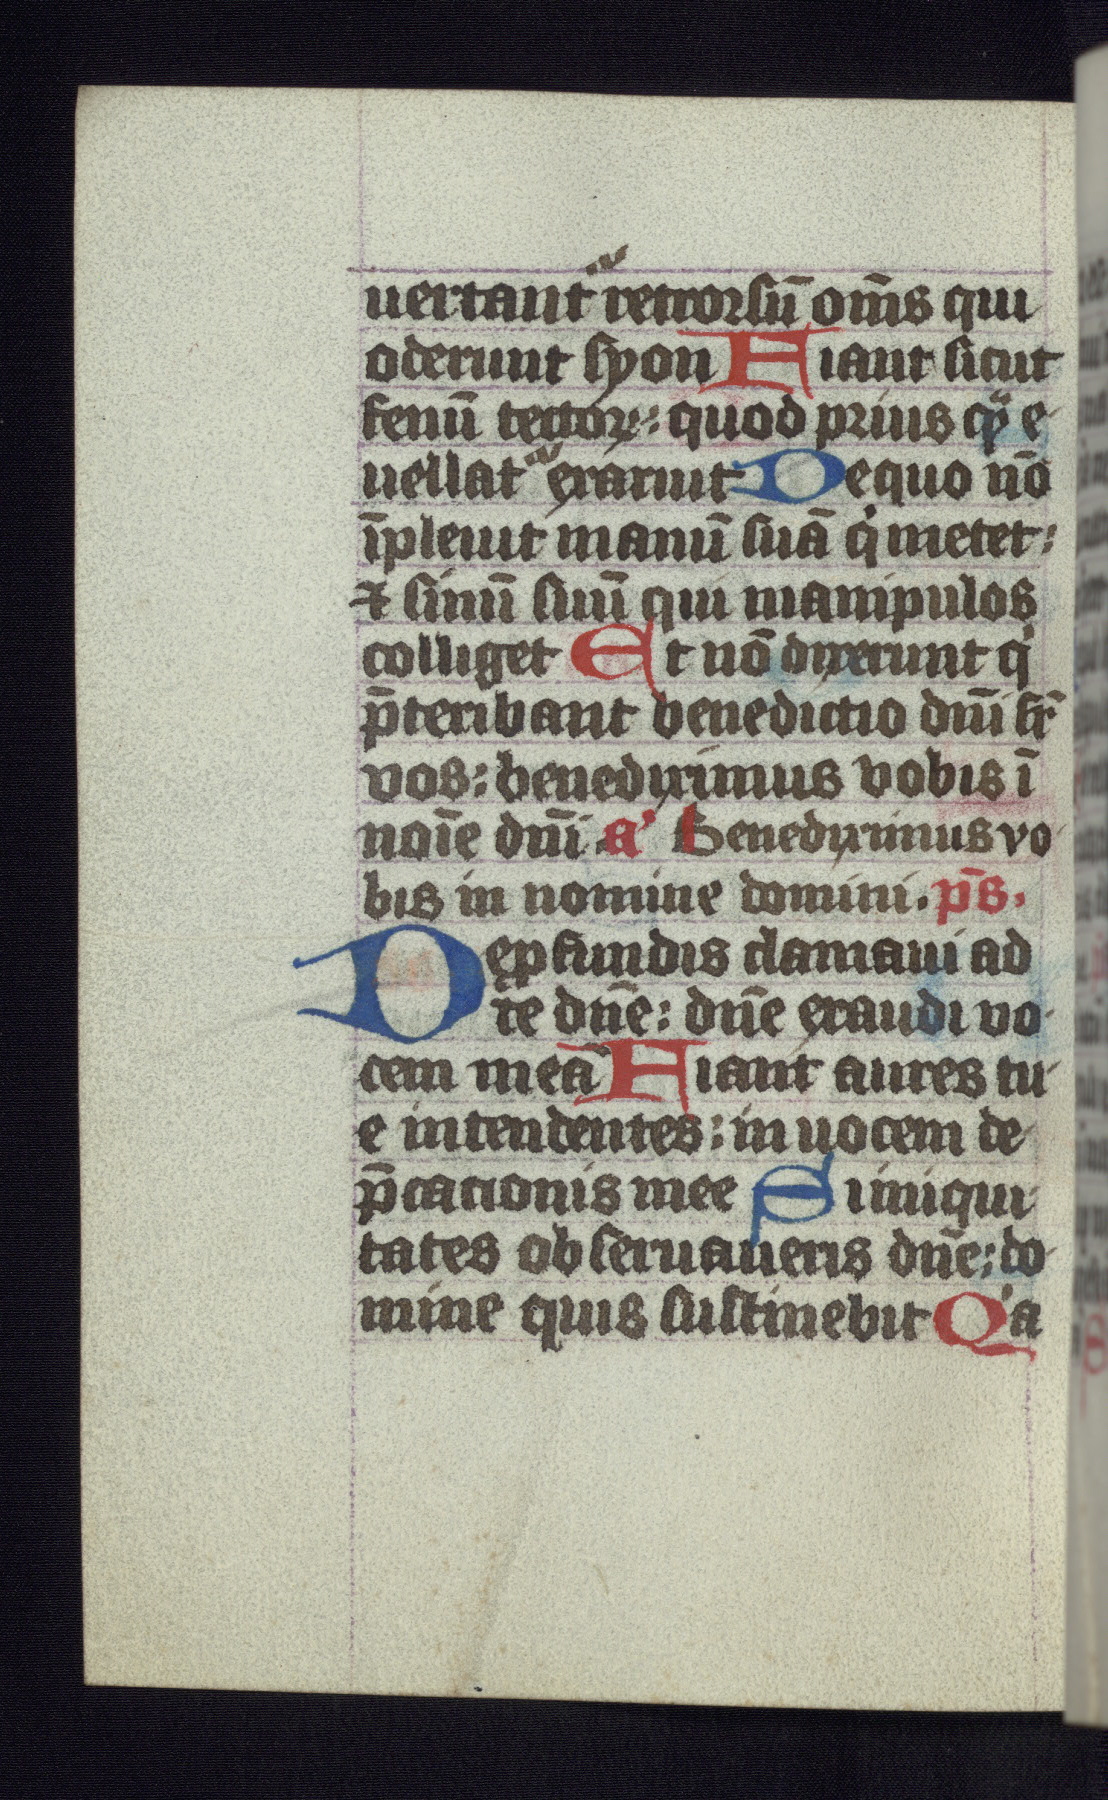 uertant᷑ retrorsū om̄s qui
oderunt syon Fiant sicut
fenū tectoꝝ: quod prius qͣꝫ e
uellat᷑ exaruit De quo nō
īpleuit manū suā qͥ metet:
⁊ sinū suū qui manipulos
colliget Et nō dixerunt qͥ
p̄teribant benedictio dn̄i sr̄
vos: benediximus vobis ī
noīe dn̄i a’ Benediximus vo
bis in nomine domini. ps̄.
De ꝓfundis clamaui ad
te dn̄e: dn̄e exaudi vo
cem meā Fiant aures tu
e intendentes: in uocem de
p̄cationis mee Si iniqui
tates obseruaueris dn̄e: do
mine quis sustinebit Qͥa